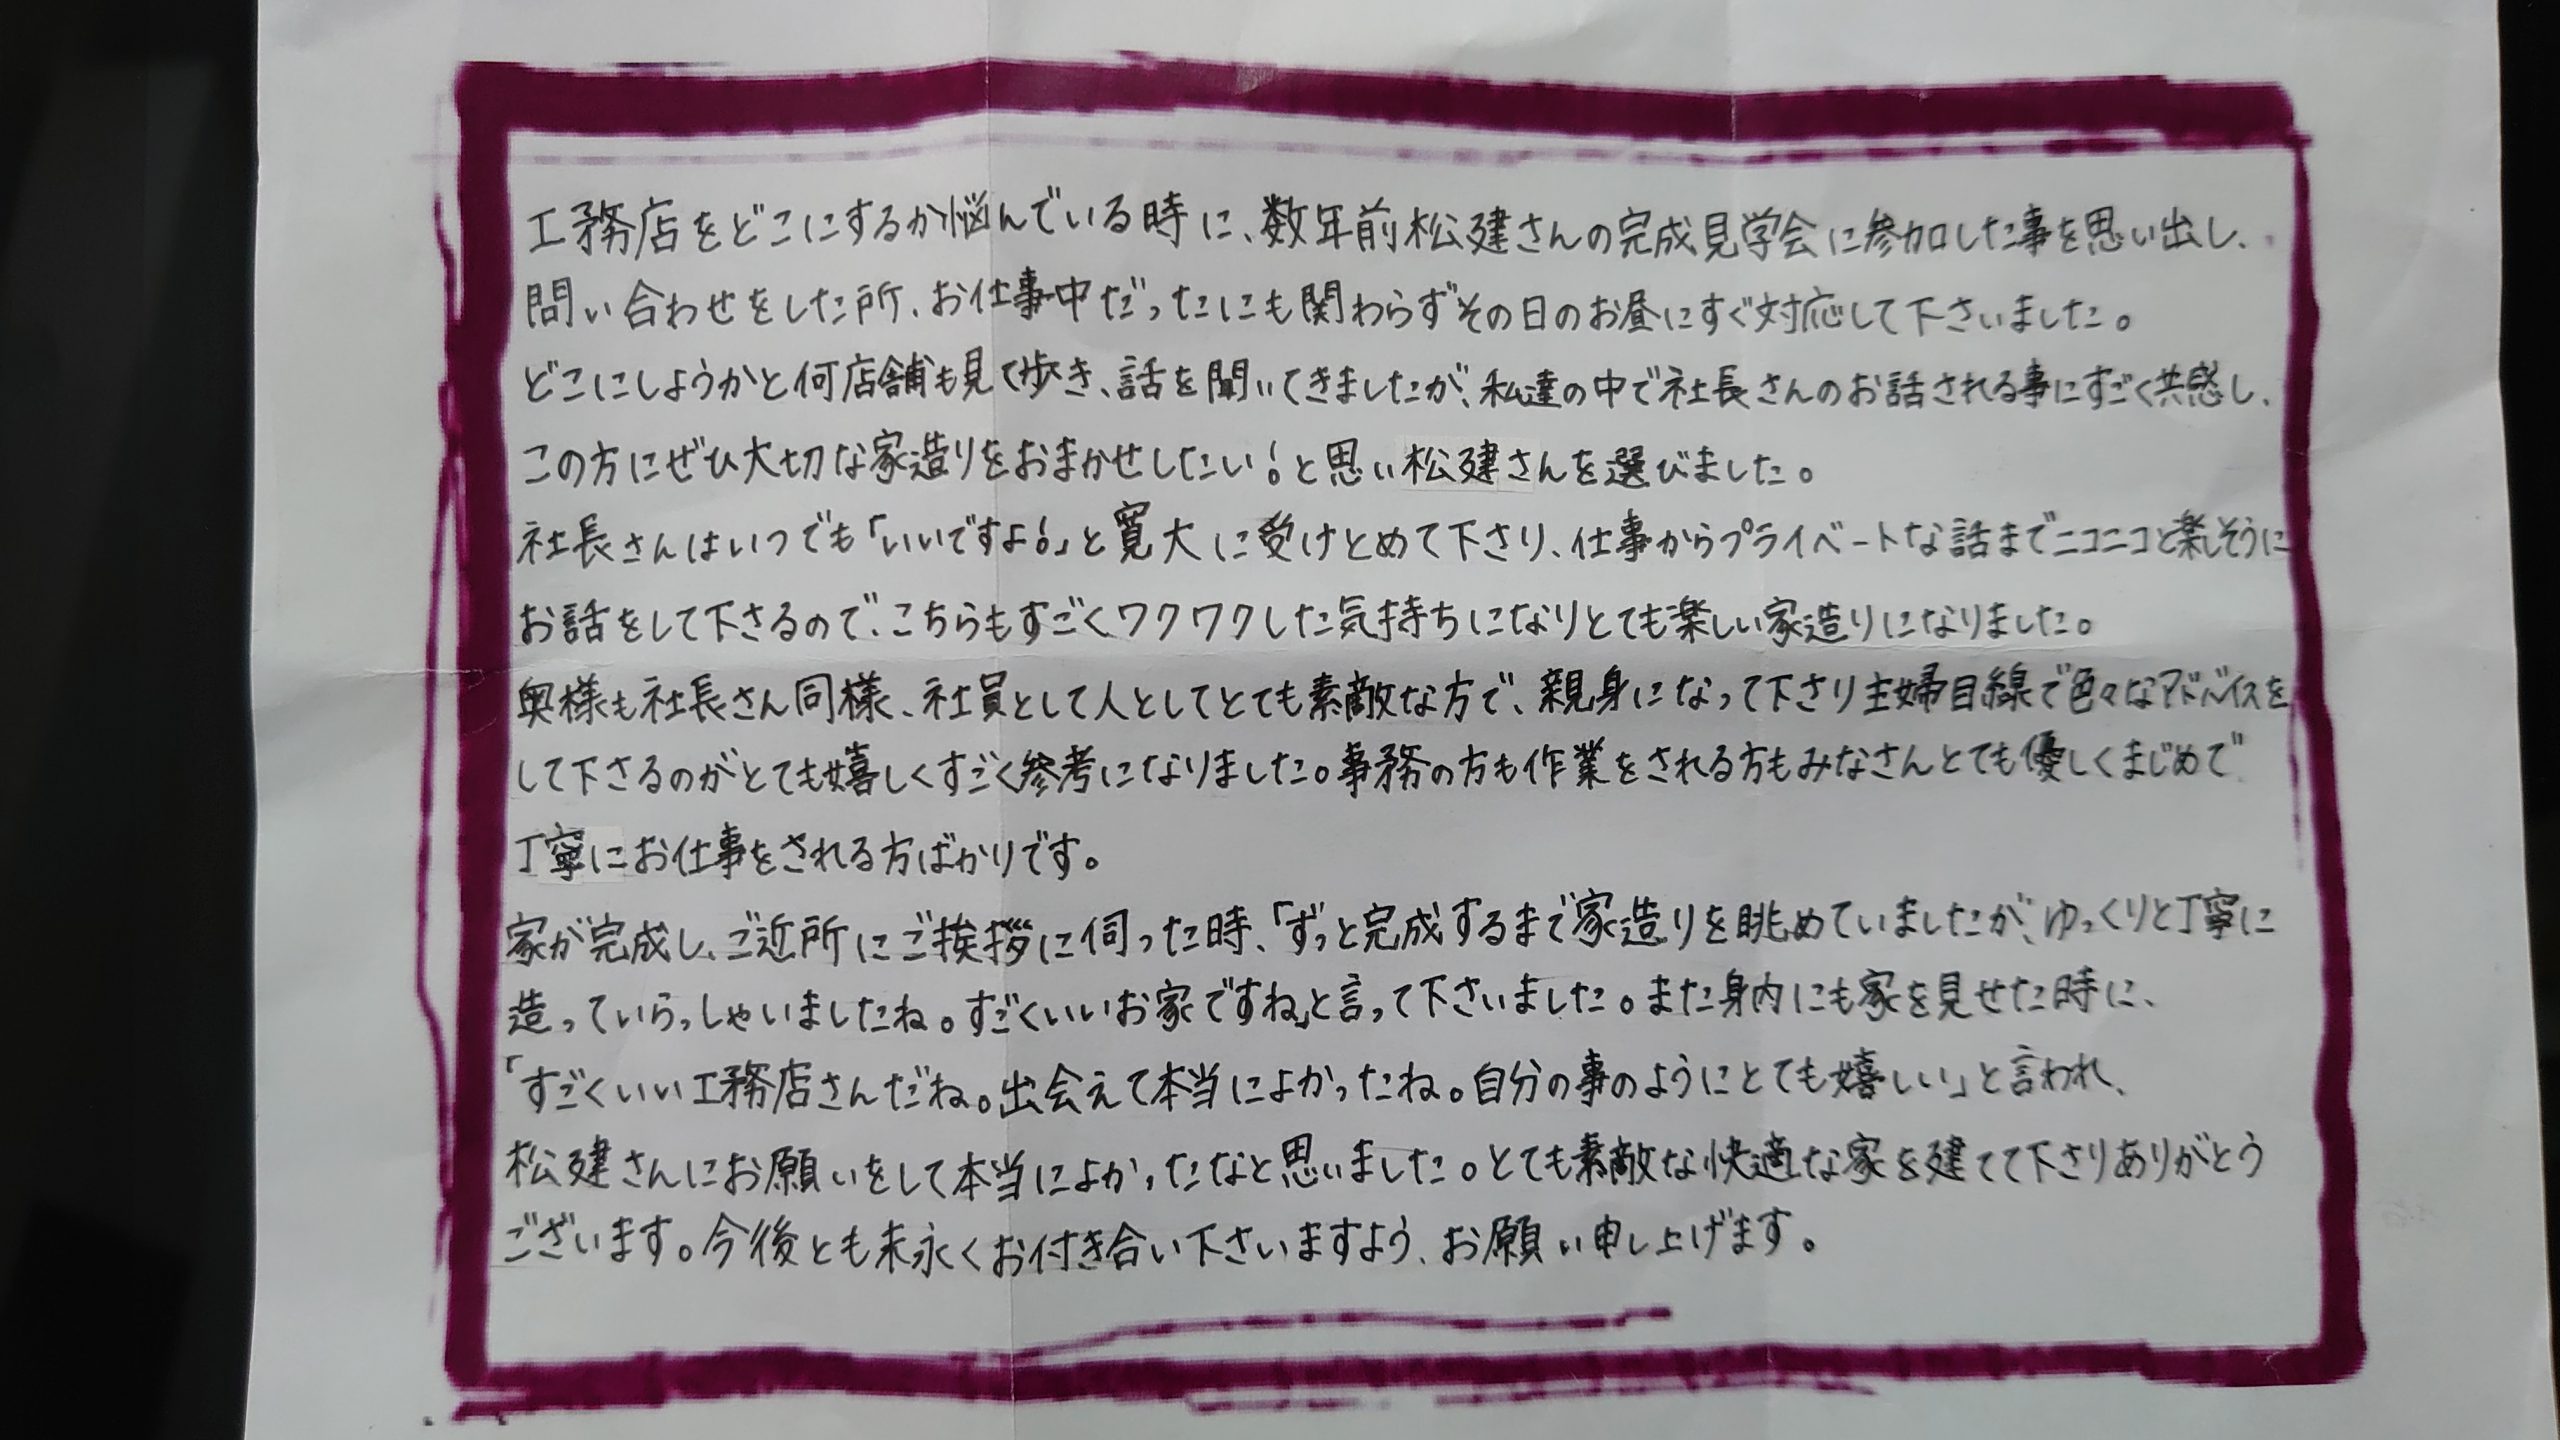 工務店をどこにするか悩んでいる時に、数年前松建さんの完成見学会に参加した事を思い出し、
問い合わせをした所、お仕事中だったにも関わらずその日のお昼にすぐ対応して下さいました。
どこにしようかと何店舗も見て歩き、話を聞いてきましたが、私達の中で社長さんのお話される事にすごく共感し、
この方にぜひ大切な家造りをおまかせしたい!と思い松建さんを選びました。
社長さんはいつでも「いいですよ!」と寛大に受けとめて下さり、仕事からプライベートな話までニコニコと楽しそうに
お話をして下さるので、こちらもすごくワクワクした気持ちになりとても楽しい家造りになりました。
奥様も社長さん同様、社員として人としてとても素敵な方で、親身になって下さり主婦目線で色々なアドバイスを
して下さるのがとても嬉しくすごく参考になりました。事務の方も作業をされる方もみなさんとても優しくまじめで
丁寧にお仕事をされる方ばかりです。
家が完成し、ご近所にご挨拶に伺った時、「ずっと完成するまで家造りを眺めていましたが、ゆっくりと丁寧に
造っていらっしゃいましたね。すごくいいお家ですね」と言って下さいました。また身内にも家を見せた時に、
「すごくいい工務店さんだね。出会えて本当によかったね。自分の事のようにとても嬉しい」と言われ、
松建さんにお願いをして本当によかったなと思いました。とても素敵な快適な家を建てて下さりありがとう
ございます。今後とも末永くお付き合い下さいますよう、お願い申し上げます。